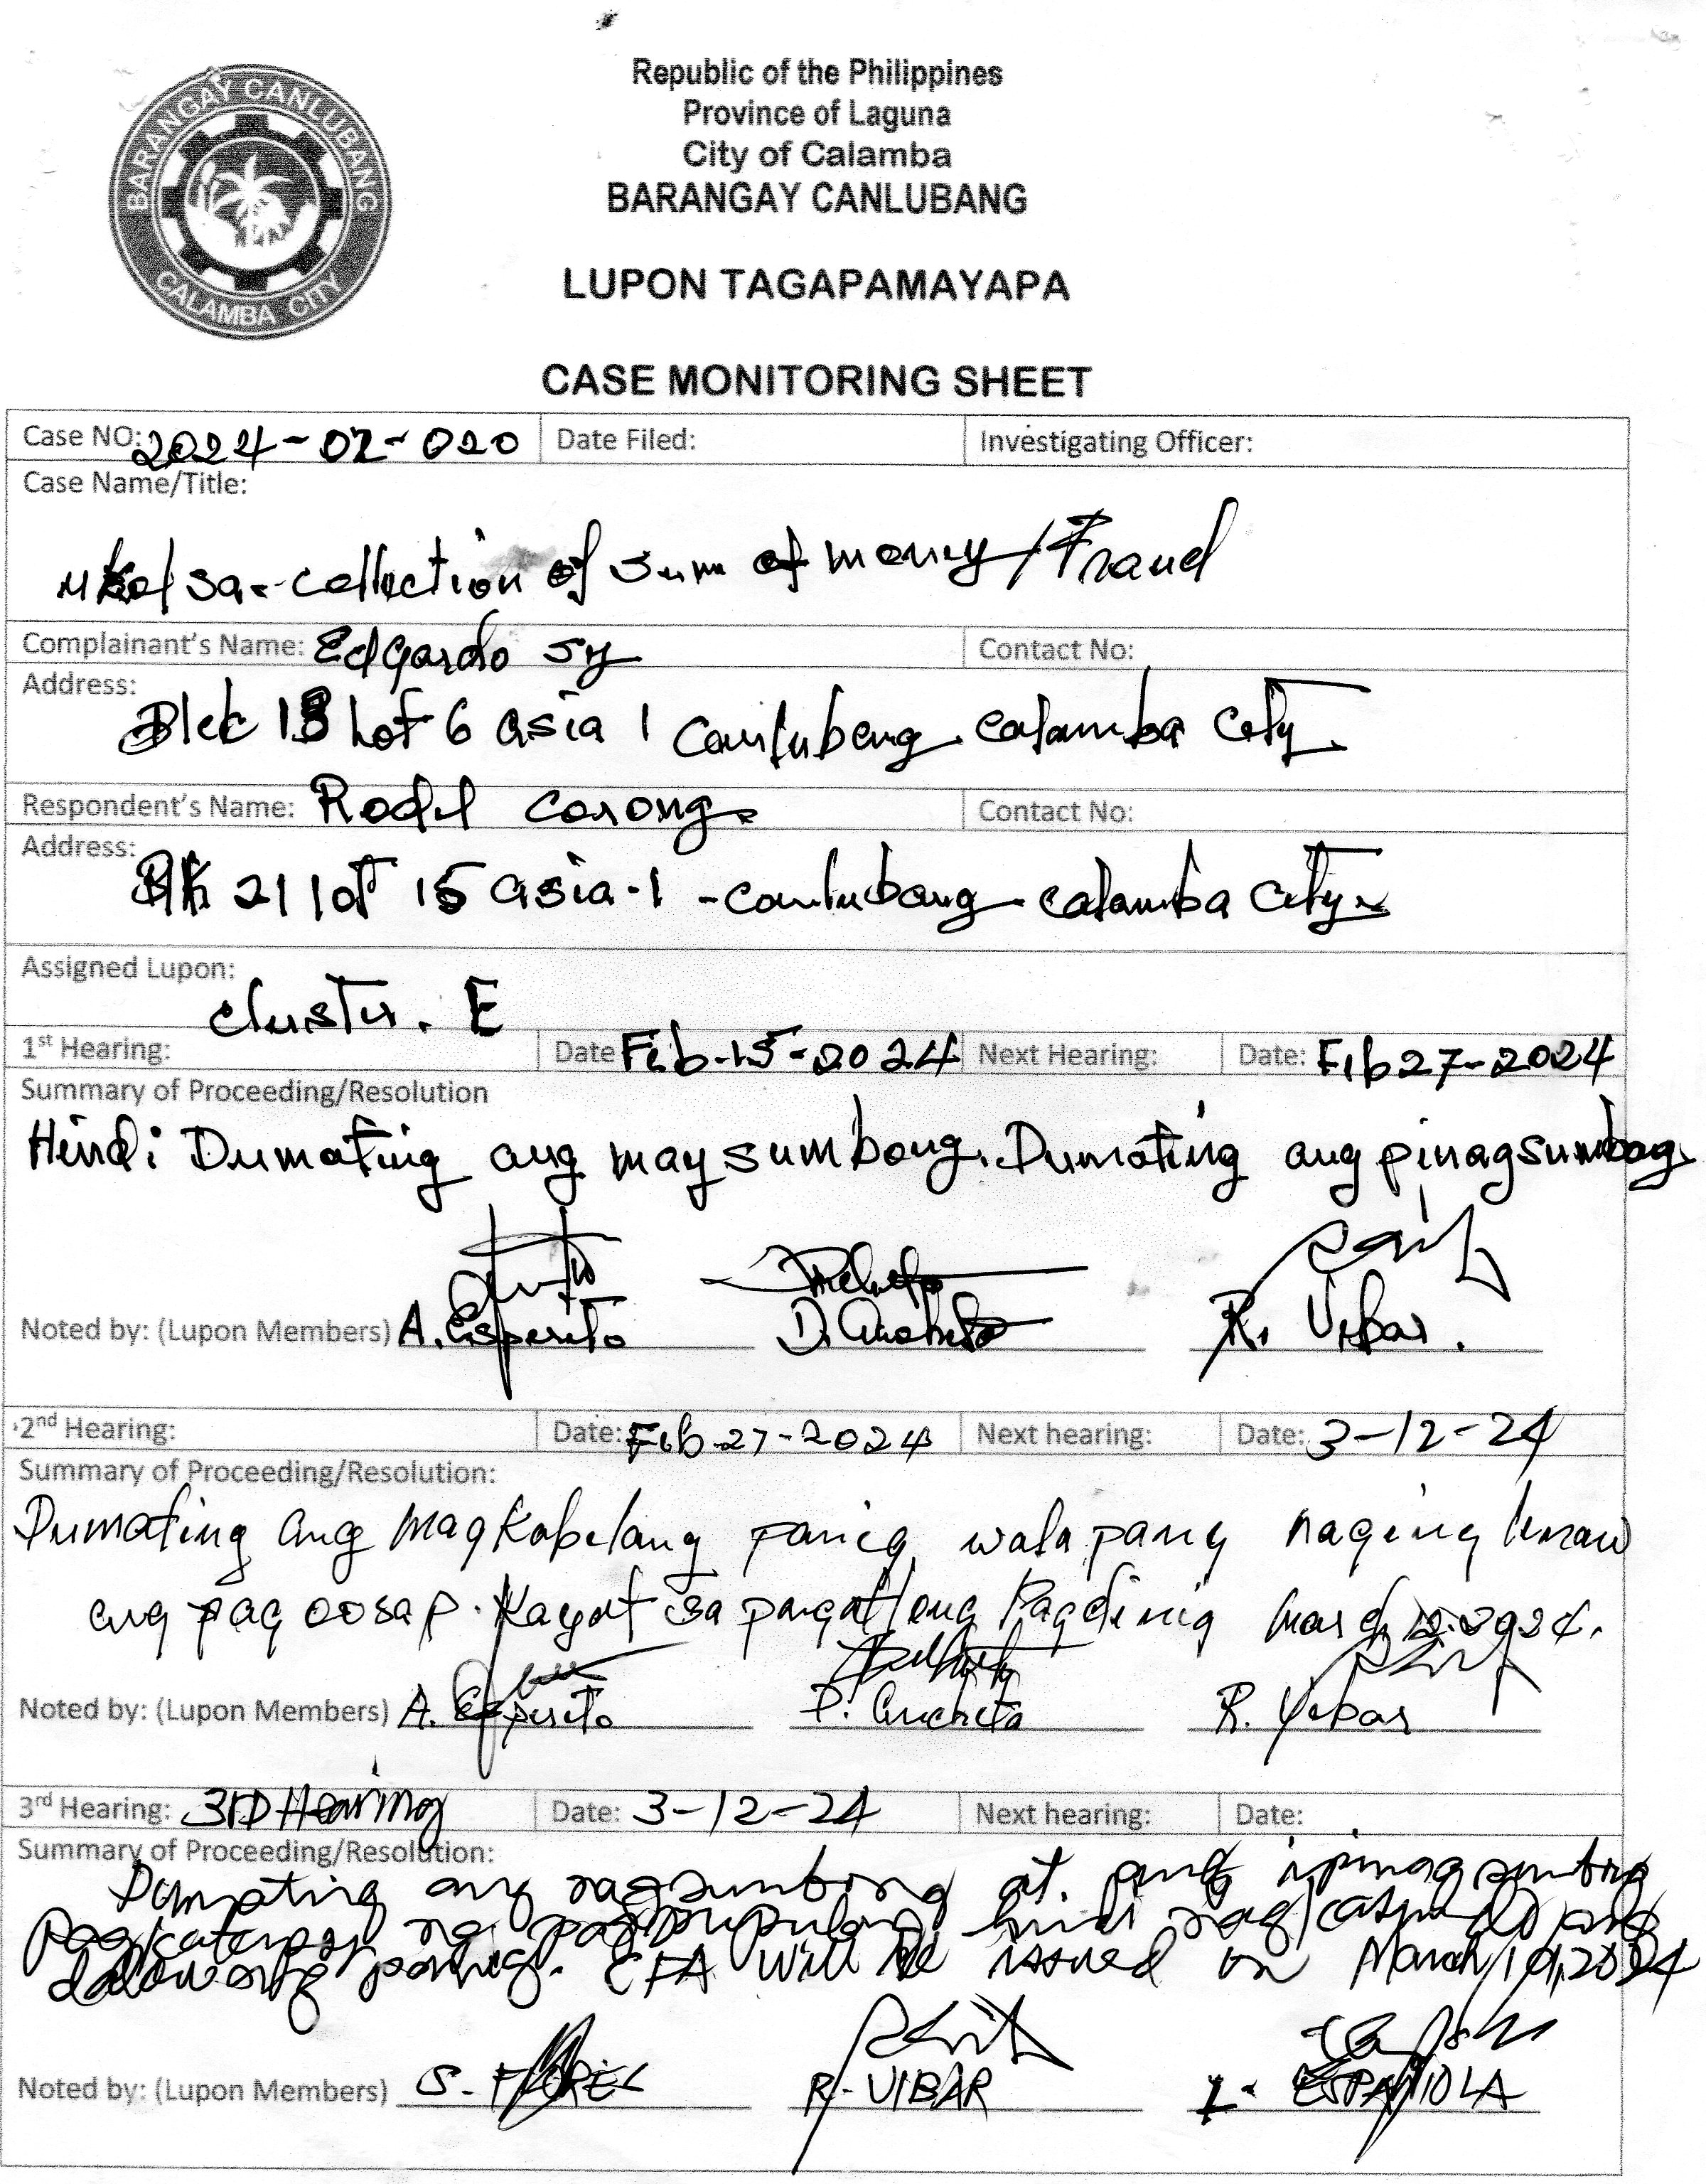 BARANGAY CANLUBANG
CALAMBA CITY
Republic of the Philippines
Province of Laguna
City of Calamba
BARANGAY CANLUBANG
LUPON TAGAPAMAYAPA
CASE MONITORING SHEET
Case NO: 2024-02-020 Date Filed: Investigating Officer:
Case Name/Title:
ukol sa - collection of sum of money/Fraud
Complainant's Name: Edgardo Sy Contact No:
Address:
Lot 6 asia 1 Canlubang. Calamba City.
Respondent's Name: Rodel Corong. Contact No:
Address:
Blk 21 lot 15 asia-1 - canlubang - calamba City.
Assigned Lupon:
cluster. E
1st Hearing: Date Feb-15-2024 Next Hearing: Date: Feb 27-2024
Summary of Proceeding/Resolution
Hindi Dumating ang may sumbong. Dumating ang pinagsumbag
Noted by: (Lupon Members) A. Esperito D. R. Vibar.
2nd Hearing: Date: Feb-27-2024 Next hearing: Date: 3-12-24
Summary of Proceeding/Resolution:
Dumating ang magkabilang panig, wala pang naging linaw
ang pag oosap. Kayat sa pangatlong Pagdinig March 12.2024.
Noted by: (Lupon Members) A. Esperito R. Vibar
3rd Hearing: 3RD Hearing Date: 3-12-24 Next hearing: Date:
Summary of Proceeding/Resolution:
Dumating ang nagsumbong at. ang ipinagsumbong
Pagkatapos ng hindi nagkasundo ang
dalawang panig. CFA will be issued on March 19, 2024
Noted by: (Lupon Members) S. R. VIBAR ESPAÑOLA